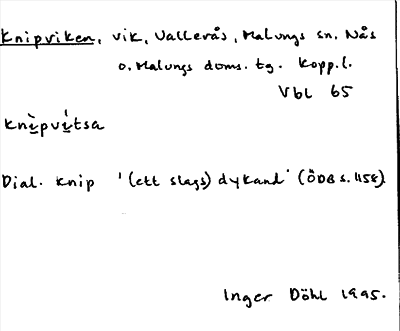 Knipviken, vik, Vallerås, Malungs sn. Nås
o. Malungs doms. tg. Kopp.l.
Vbl 65
knìpvítsa
Dial. knip '(ett slags) dykand' (ÖDB s. 1158)
Inger Döhl 1995.